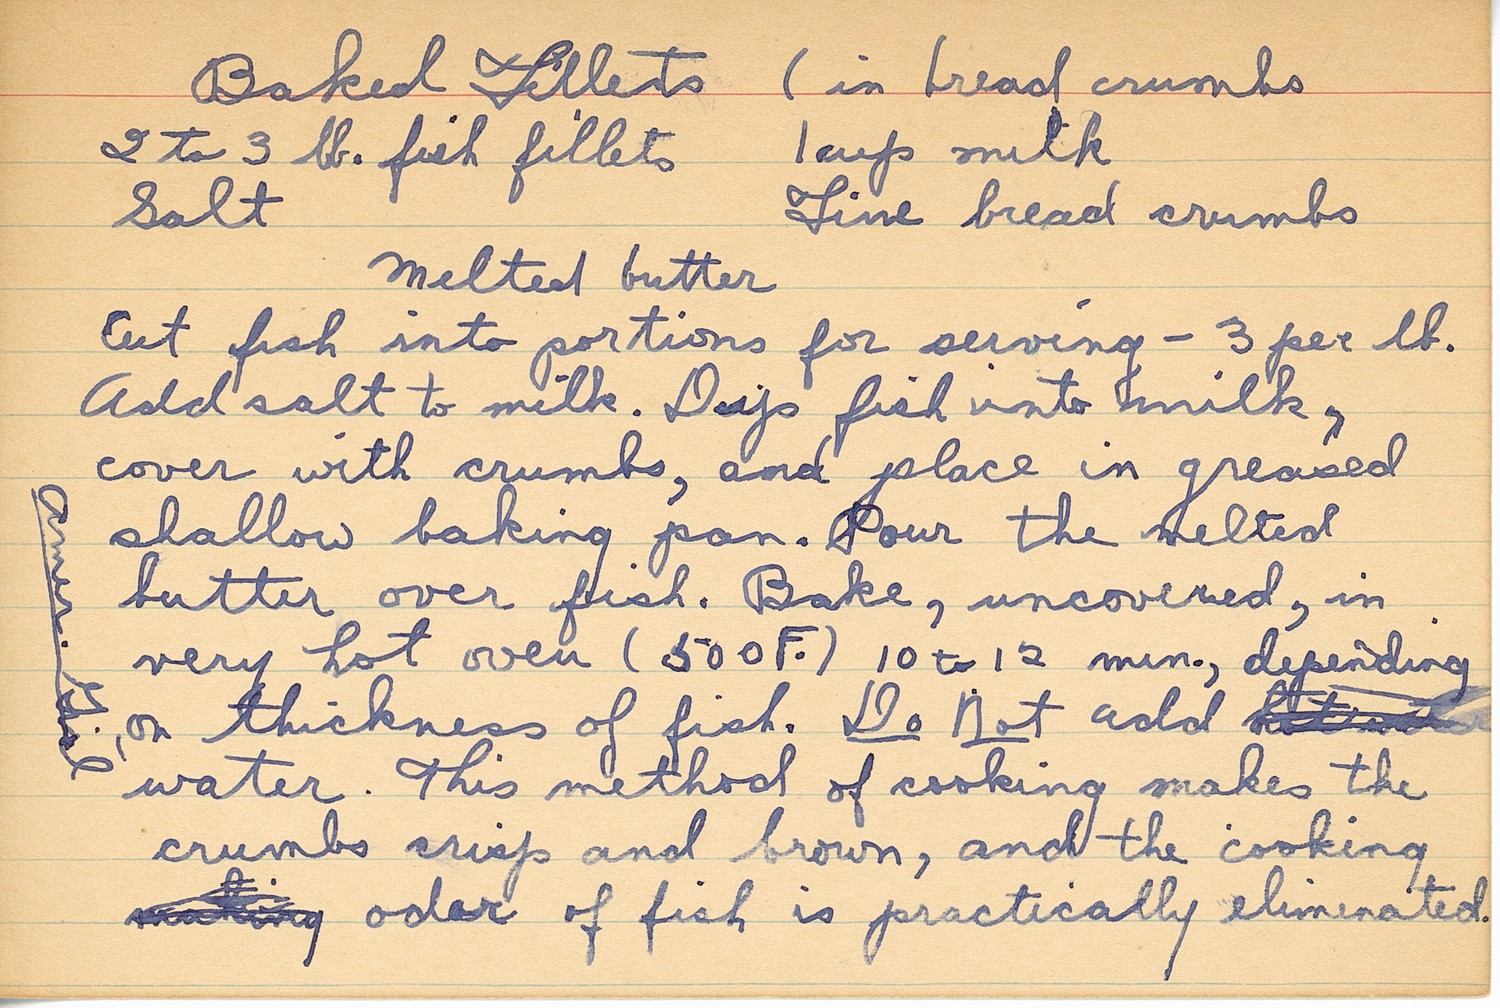 Baked Fillets ( in bread crumbs
2 to 3 lb. fish fillets 1 cup milk
Salt Fine bread crumbs
Melted butter
Cut fish into portions for serving - 3 per lb.
Add salt to milk. Dip fish into milk,
cover with crumbs, and place in greased
shallow baking pan. Pour the melted
butter over fish. Bake, uncovered, in
very hot oven (500F.) 10 to 12 min., depending
on thickness of fish. Do Not add
water. This method of cooking makes the
crumbs crisp and brown, and the cooking
odor of fish is practically eliminated.